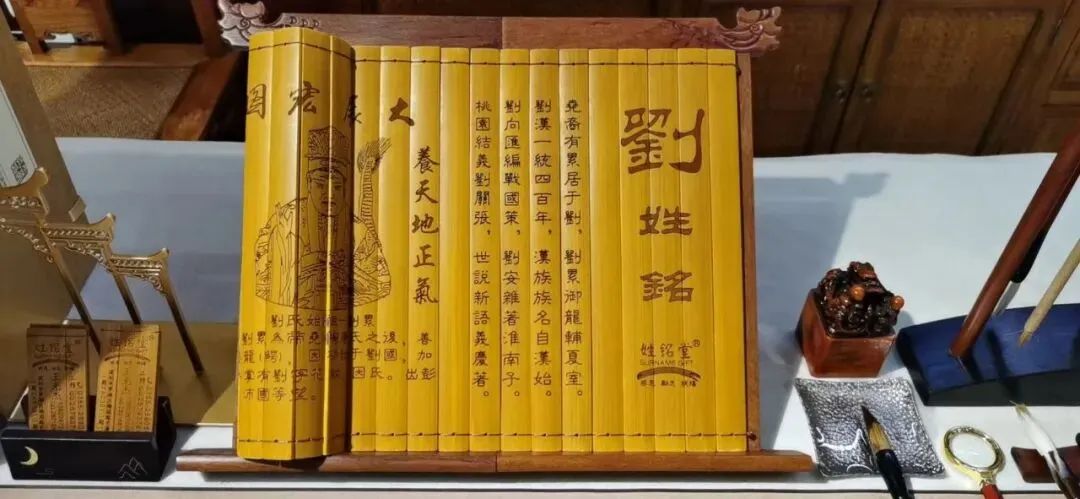 劉姓銘
姓銘堂®
SURNAME GIFT
堯裔有累居于劉，劉累御龍輔夏室。
劉漢一統四百年，漢族族名自漢始。
劉向匯編戰國策，劉安雜著淮南子。
桃園結義劉關張，世說新語義慶著。
養天地正氣
大展宏圖
劉氏始祖—劉累
氏之後，善
龍(鱷)，因
于劉國，
因氏。出彭
姓銘堂
姓銘堂